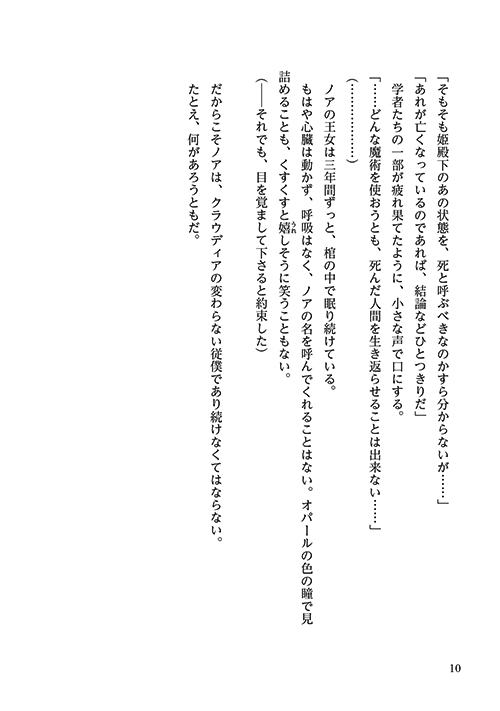 「そもそも姫殿下のあの状態を、死と呼ぶべきなのかすら分からないが……」
「あれが亡くなっているのであれば、結論などひとつきりだ」
学者たちの一部が疲れ果てたように、小さな声で口にする。
「……どんな魔術を使おうとも、死んだ人間を生き返らせることは出来ない……」
（………………）
ノアの王女は三年間ずっと、棺の中で眠り続けている。
もはや心臓は動かず、呼吸はなく、ノアの名を呼んでくれることはない。オパールの色の瞳で見
詰めることも、くすくすと嬉しそうに笑うこともない。
うれ
（――それでも、目を覚まして下さると約束した）
だからこそノアは、クラウディアの変わらない従僕であり続けなくてはならない。
たとえ、何があろうともだ。
10